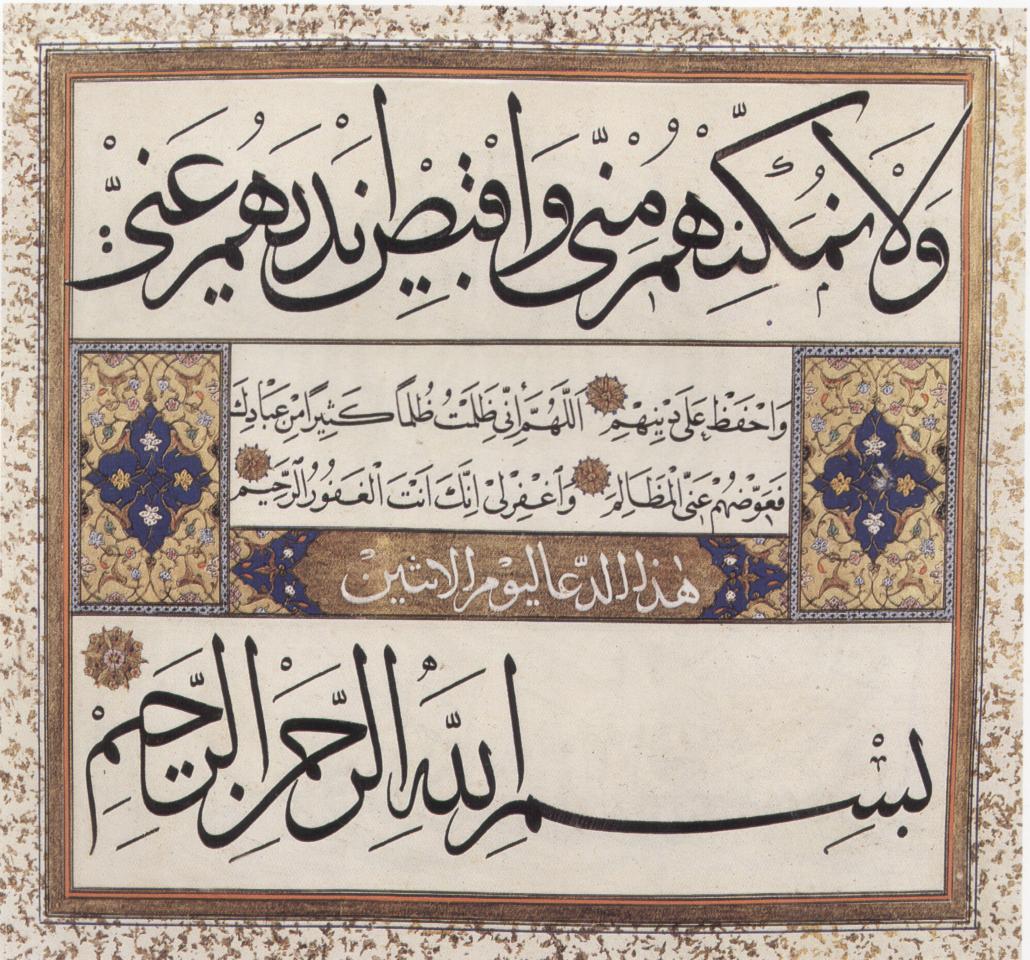 وَلَا تُمَكِّنْهُمْ مِنِّي وَاقْبِضْ اَيْدِيَهُمْ عَنِّي
وَاحْفَظْ عَلَيَّ دِينَهُمْ اَللّٰهُمَّ اِنِّي ظَلَمْتُ ظُلْمًا كَثِيرًا مِنْ عِبَادِكَ
فَعَوِّضْهُمْ عَنِّي الْمَظَالِمَ وَاغْفِرْ لِي اِنَّكَ اَنْتَ الْغَفُورُ الرَّحِيمُ
هٰذا الدّعا ليوم الاثنين
بِسْمِ اللّٰهِ الرَّحْمٰنِ الرَّحِيمِ